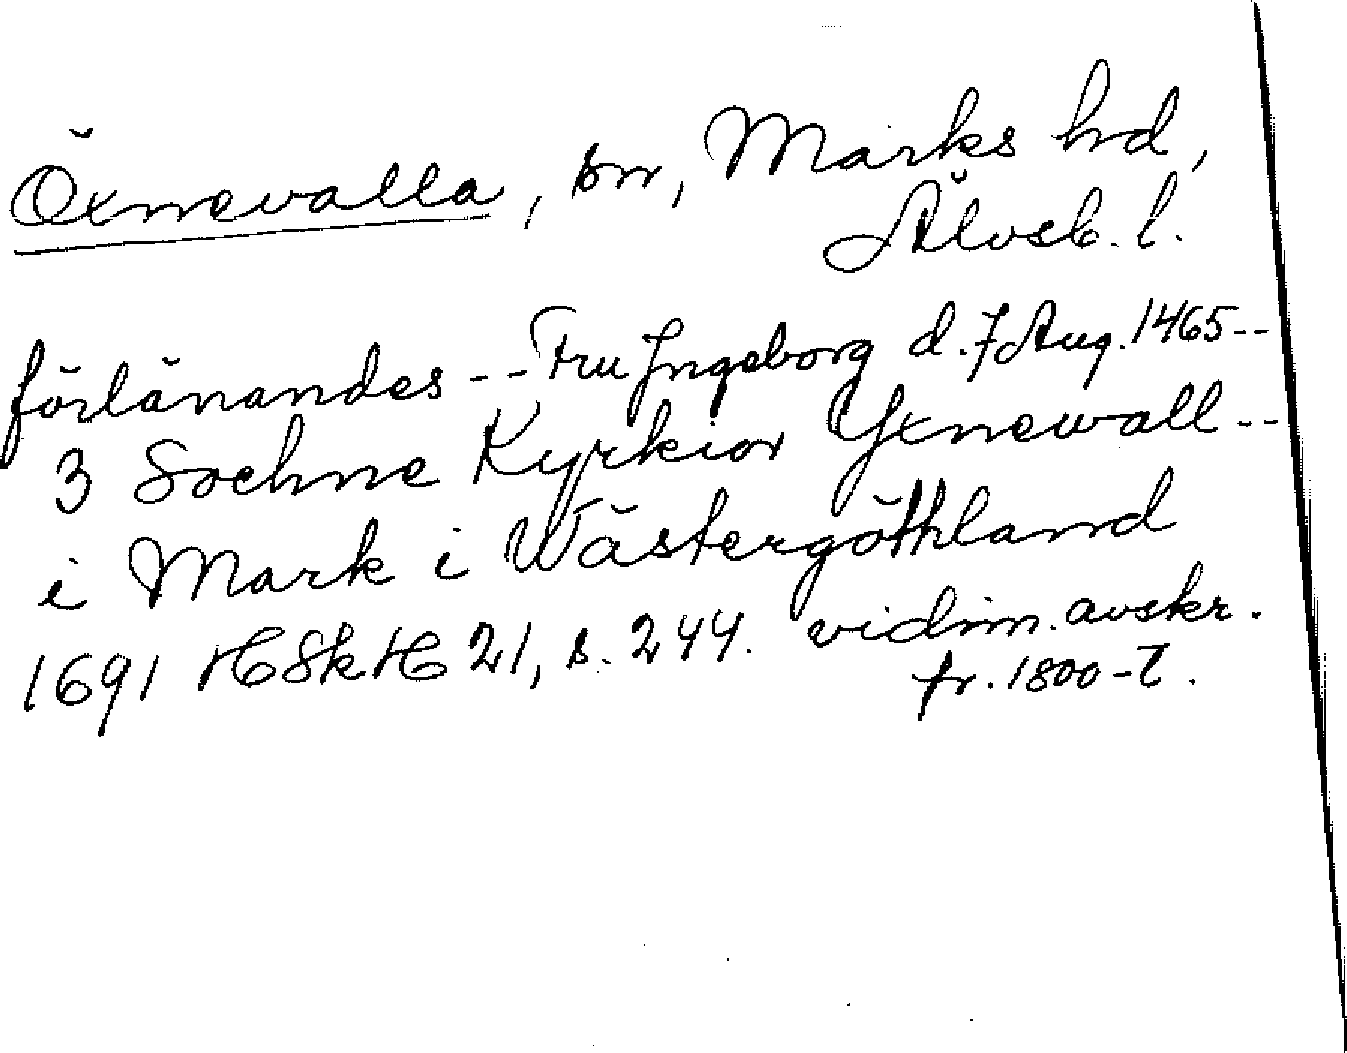 Öxnevalla, sn, Marks hd,
Älvsb. l.
förlänandes -- Fru Ingeborg d. 7 Aug. 1465--
3 Sochne Kyrkior Yxnewall --
i Mark i Wästergöthland
1691 HSkH 21, s. 244. vidim. avskr.
fr. 1800-t.